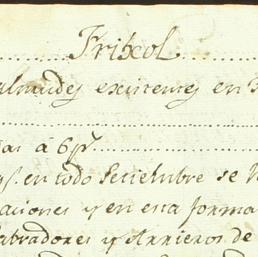 Frixol
almudes
en
as á 6 p.
en todo Setiembre se
aciones y en esta forma
abradores y Arrieros de